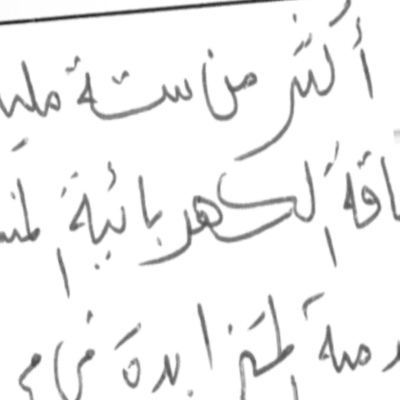 أكثر من ستة ملي
اقة الكهربائية المن
دمة المتزايدة في م